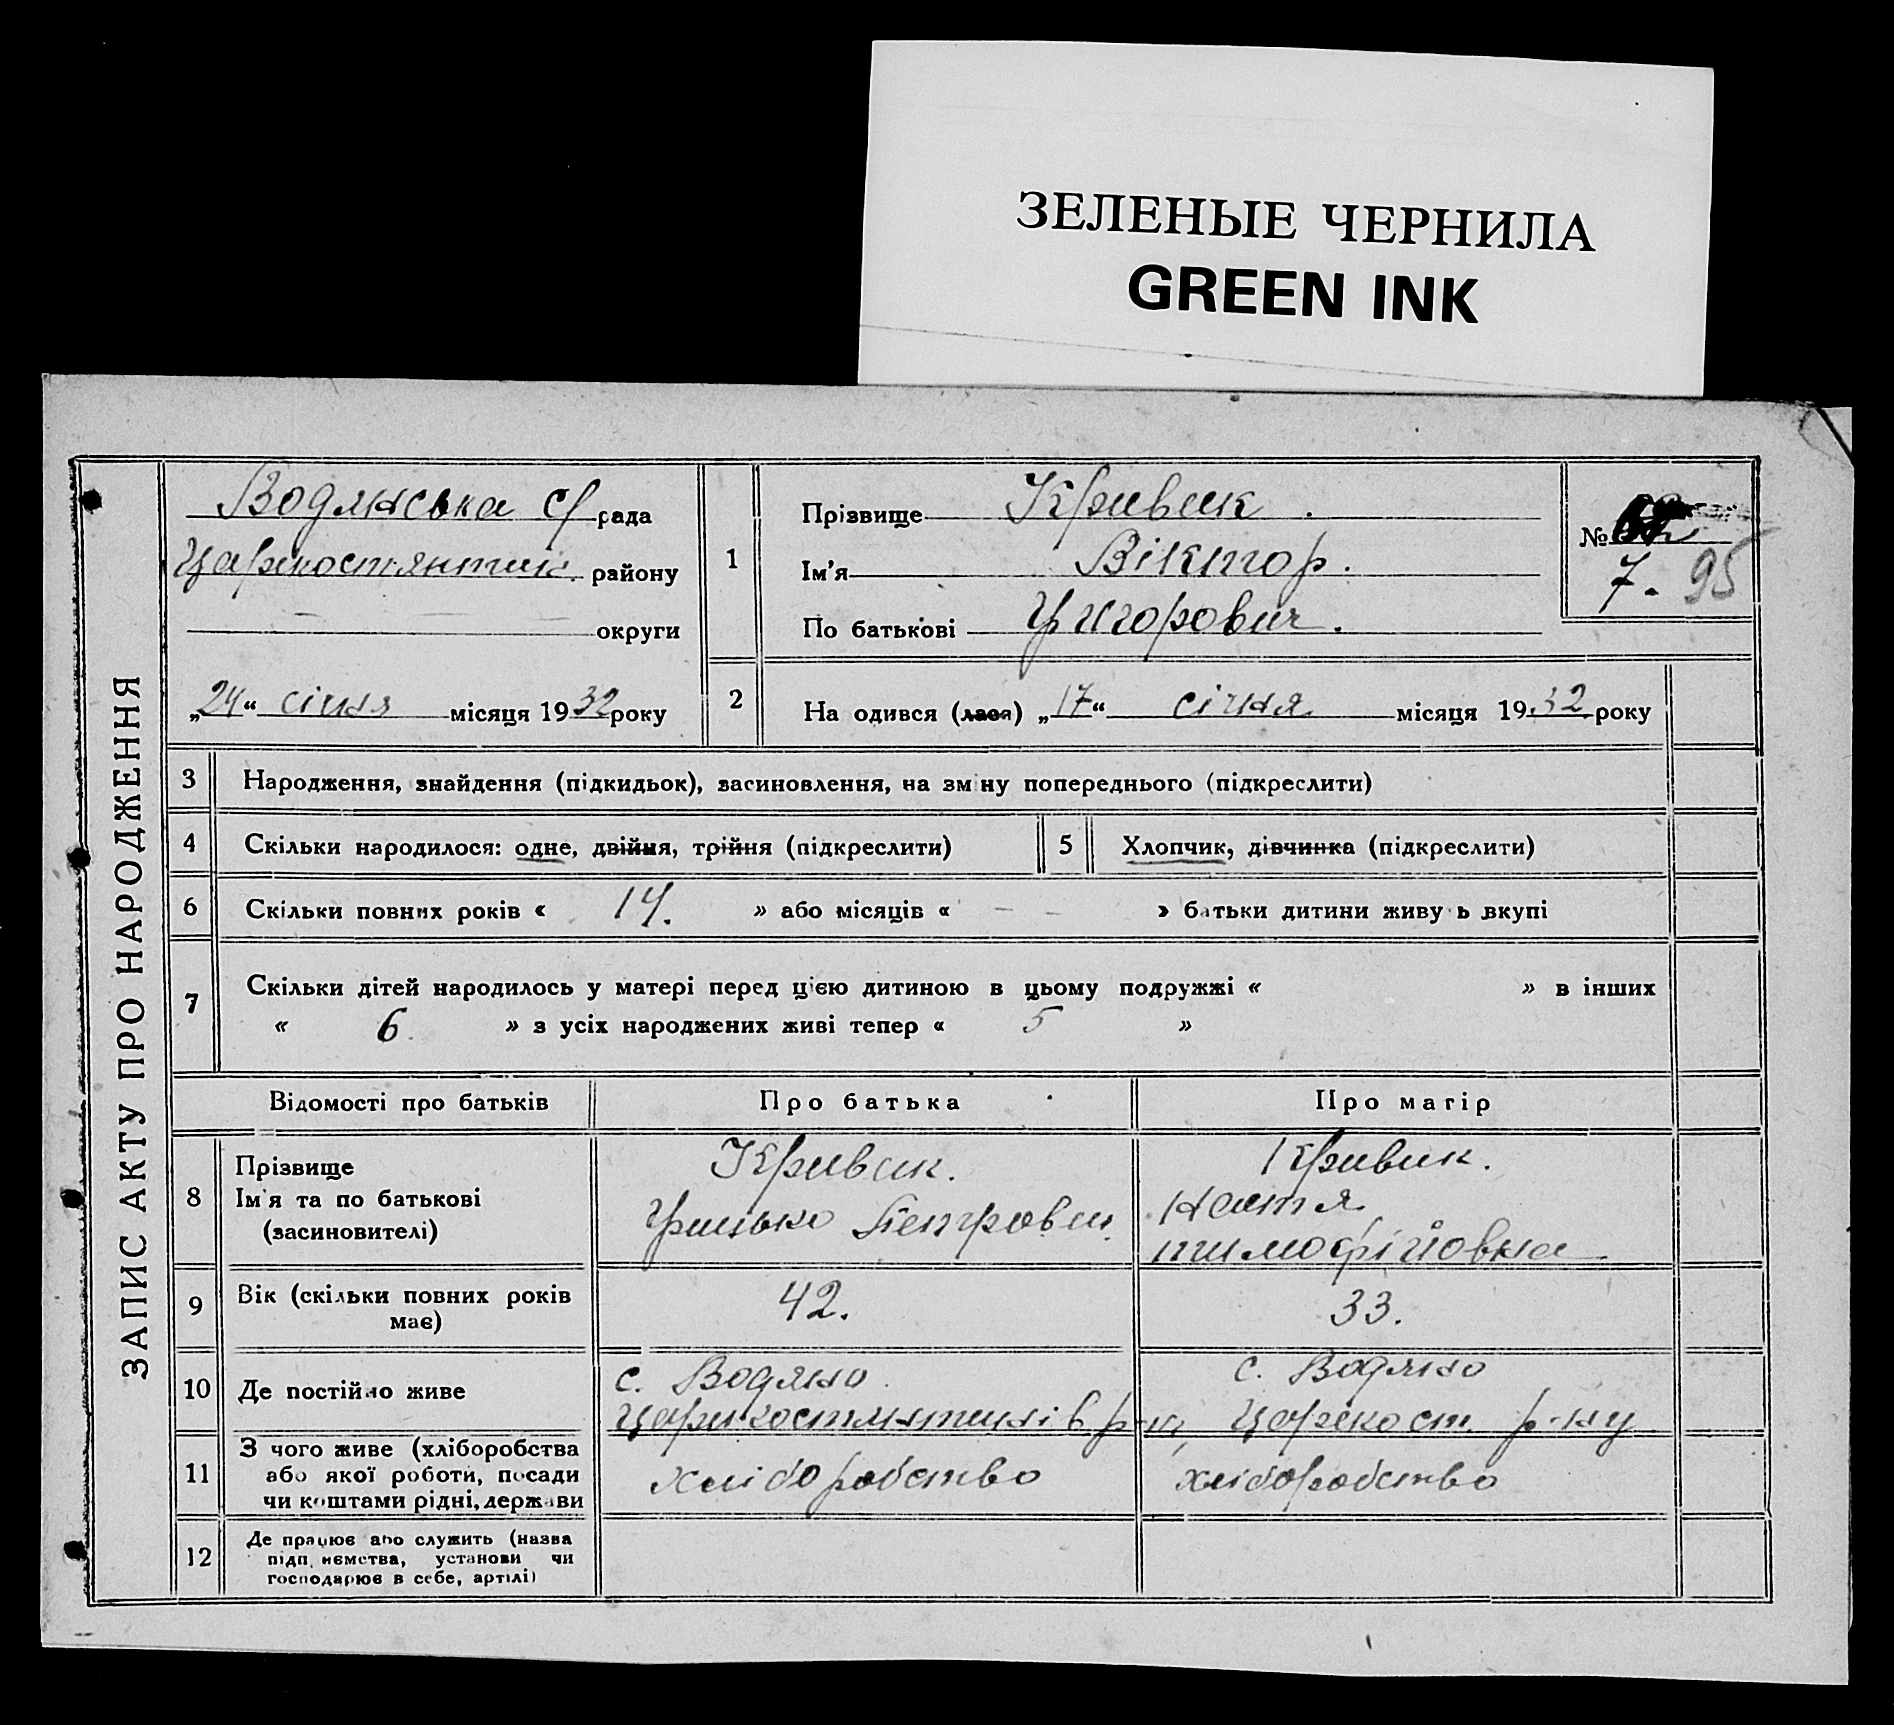 ЗЕЛЕНЫЕ ЧЕРНИЛА
GREEN INK
ЗАПИС АКТУ ПРО НАРОДЖЕННЯ
Водянська с/рада
району
округи
„24“ січня місяця 1932 року
1
Прізвище Кривик.
Ім’я Віктор.
По батькові Григорович.
№
7. 95
2 На одився (лася) „17“ січня місяця 1932 року
3 Народження, знайдення (підкидьок), засиновлення, на зміну попереднього (підкреслити)
4 Скільки народилося: одне, двійня, трійня (підкреслити) 5 Хлопчик, дівчинка (підкреслити)
6 Скільки повних років « 14. » або місяців « – – » батьки дитини живуть вкупі
7 Скільки дітей народилось у матері перед цією дитиною в цьому подружжі « » в інших
« 6. » з усіх народжених живі тепер « 5 »
Відомості про батьків Про батька Про матір
8 Прізвище Кривик. Кривик.
Ім’я та по батькові Грицько Петрович. Настя
(засиновителі) тимофійовна
9 Вік (скільки повних років має) 42. 33.
10 Де постійно живе с. Водяно с. Водяно
Царекост. р-ну
11 З чого живе (хліборобства хліборобство хліборобство
або якої роботи, посади
чи коштами рідні, держави
12 Де працює або служить (назва
підприємства, установи чи
господарює в себе, артілі)